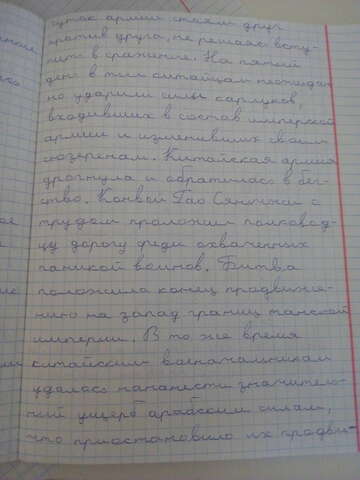 суток армии стояли друг
против друга, не решаясь всту-
пить в сражение. На пятый
день в тыл китайцам неожидан-
но ударили силы карлуков,
входивших в состав имперской
армии и изменивших своим
сюзеренам. Китайская армия
дрогнула и обратилась в бег-
ство. Конвой Гао Сяньчжи с
трудом проложил полковод-
цу дорогу среди охваченных
паникой воинов. Битва
положила конец продвиже-
нию на запад границ танской
империи. В то же время
китайским военачальникам
удалось нанести значитель-
ный ущерб арабским силам,
что приостановило их продви-